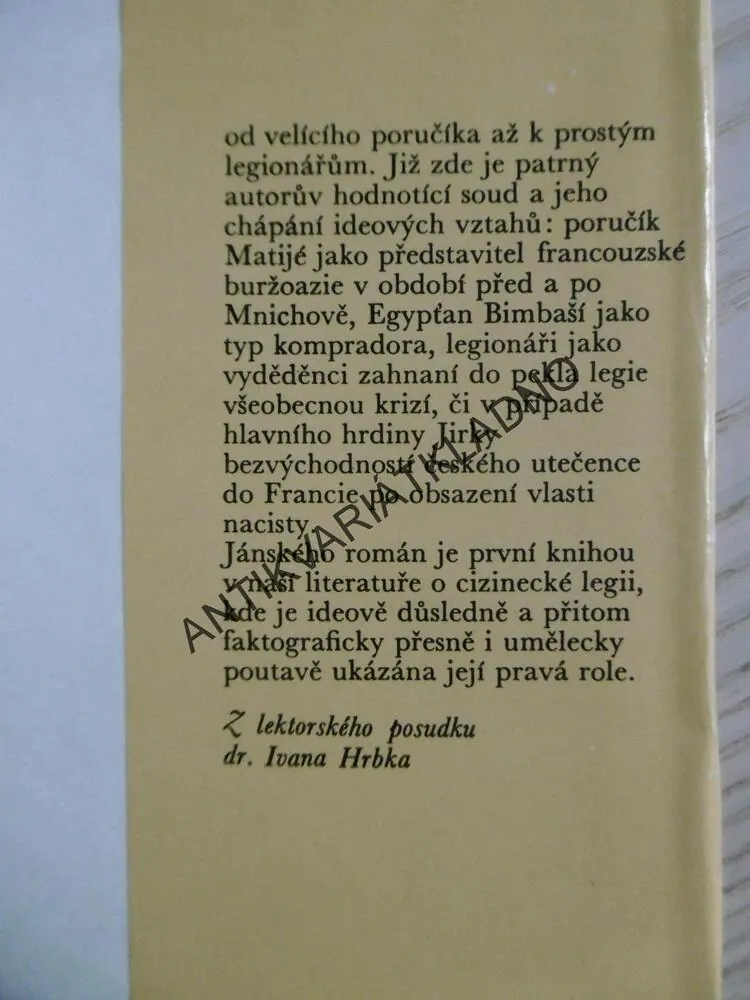 od velícího poručíka až k prostým
legionářům. Již zde je patrný
autorův hodnotící soud a jeho
chápání ideových vztahů: poručík
Matijé jako představitel francouzské
buržoazie v období před a po
Mnichově, Egypťan Bimbaší jako
typ kompradora, legionáři jako
vyděděnci zahnaní do pekla legie
všeobecnou krizí, či v případě
hlavního hrdiny Jirky
bezvýchodností českého utečence
do Francie po obsazení vlasti
nacisty.
Jánského román je první knihou
v naší literatuře o cizinecké legii,
kde je ideově důsledně a přitom
faktograficky přesně i umělecky
poutavě ukázána její pravá role.
Z lektorského posudku
dr. Ivana Hrbka
ANTIKVARIÁTKLADNO